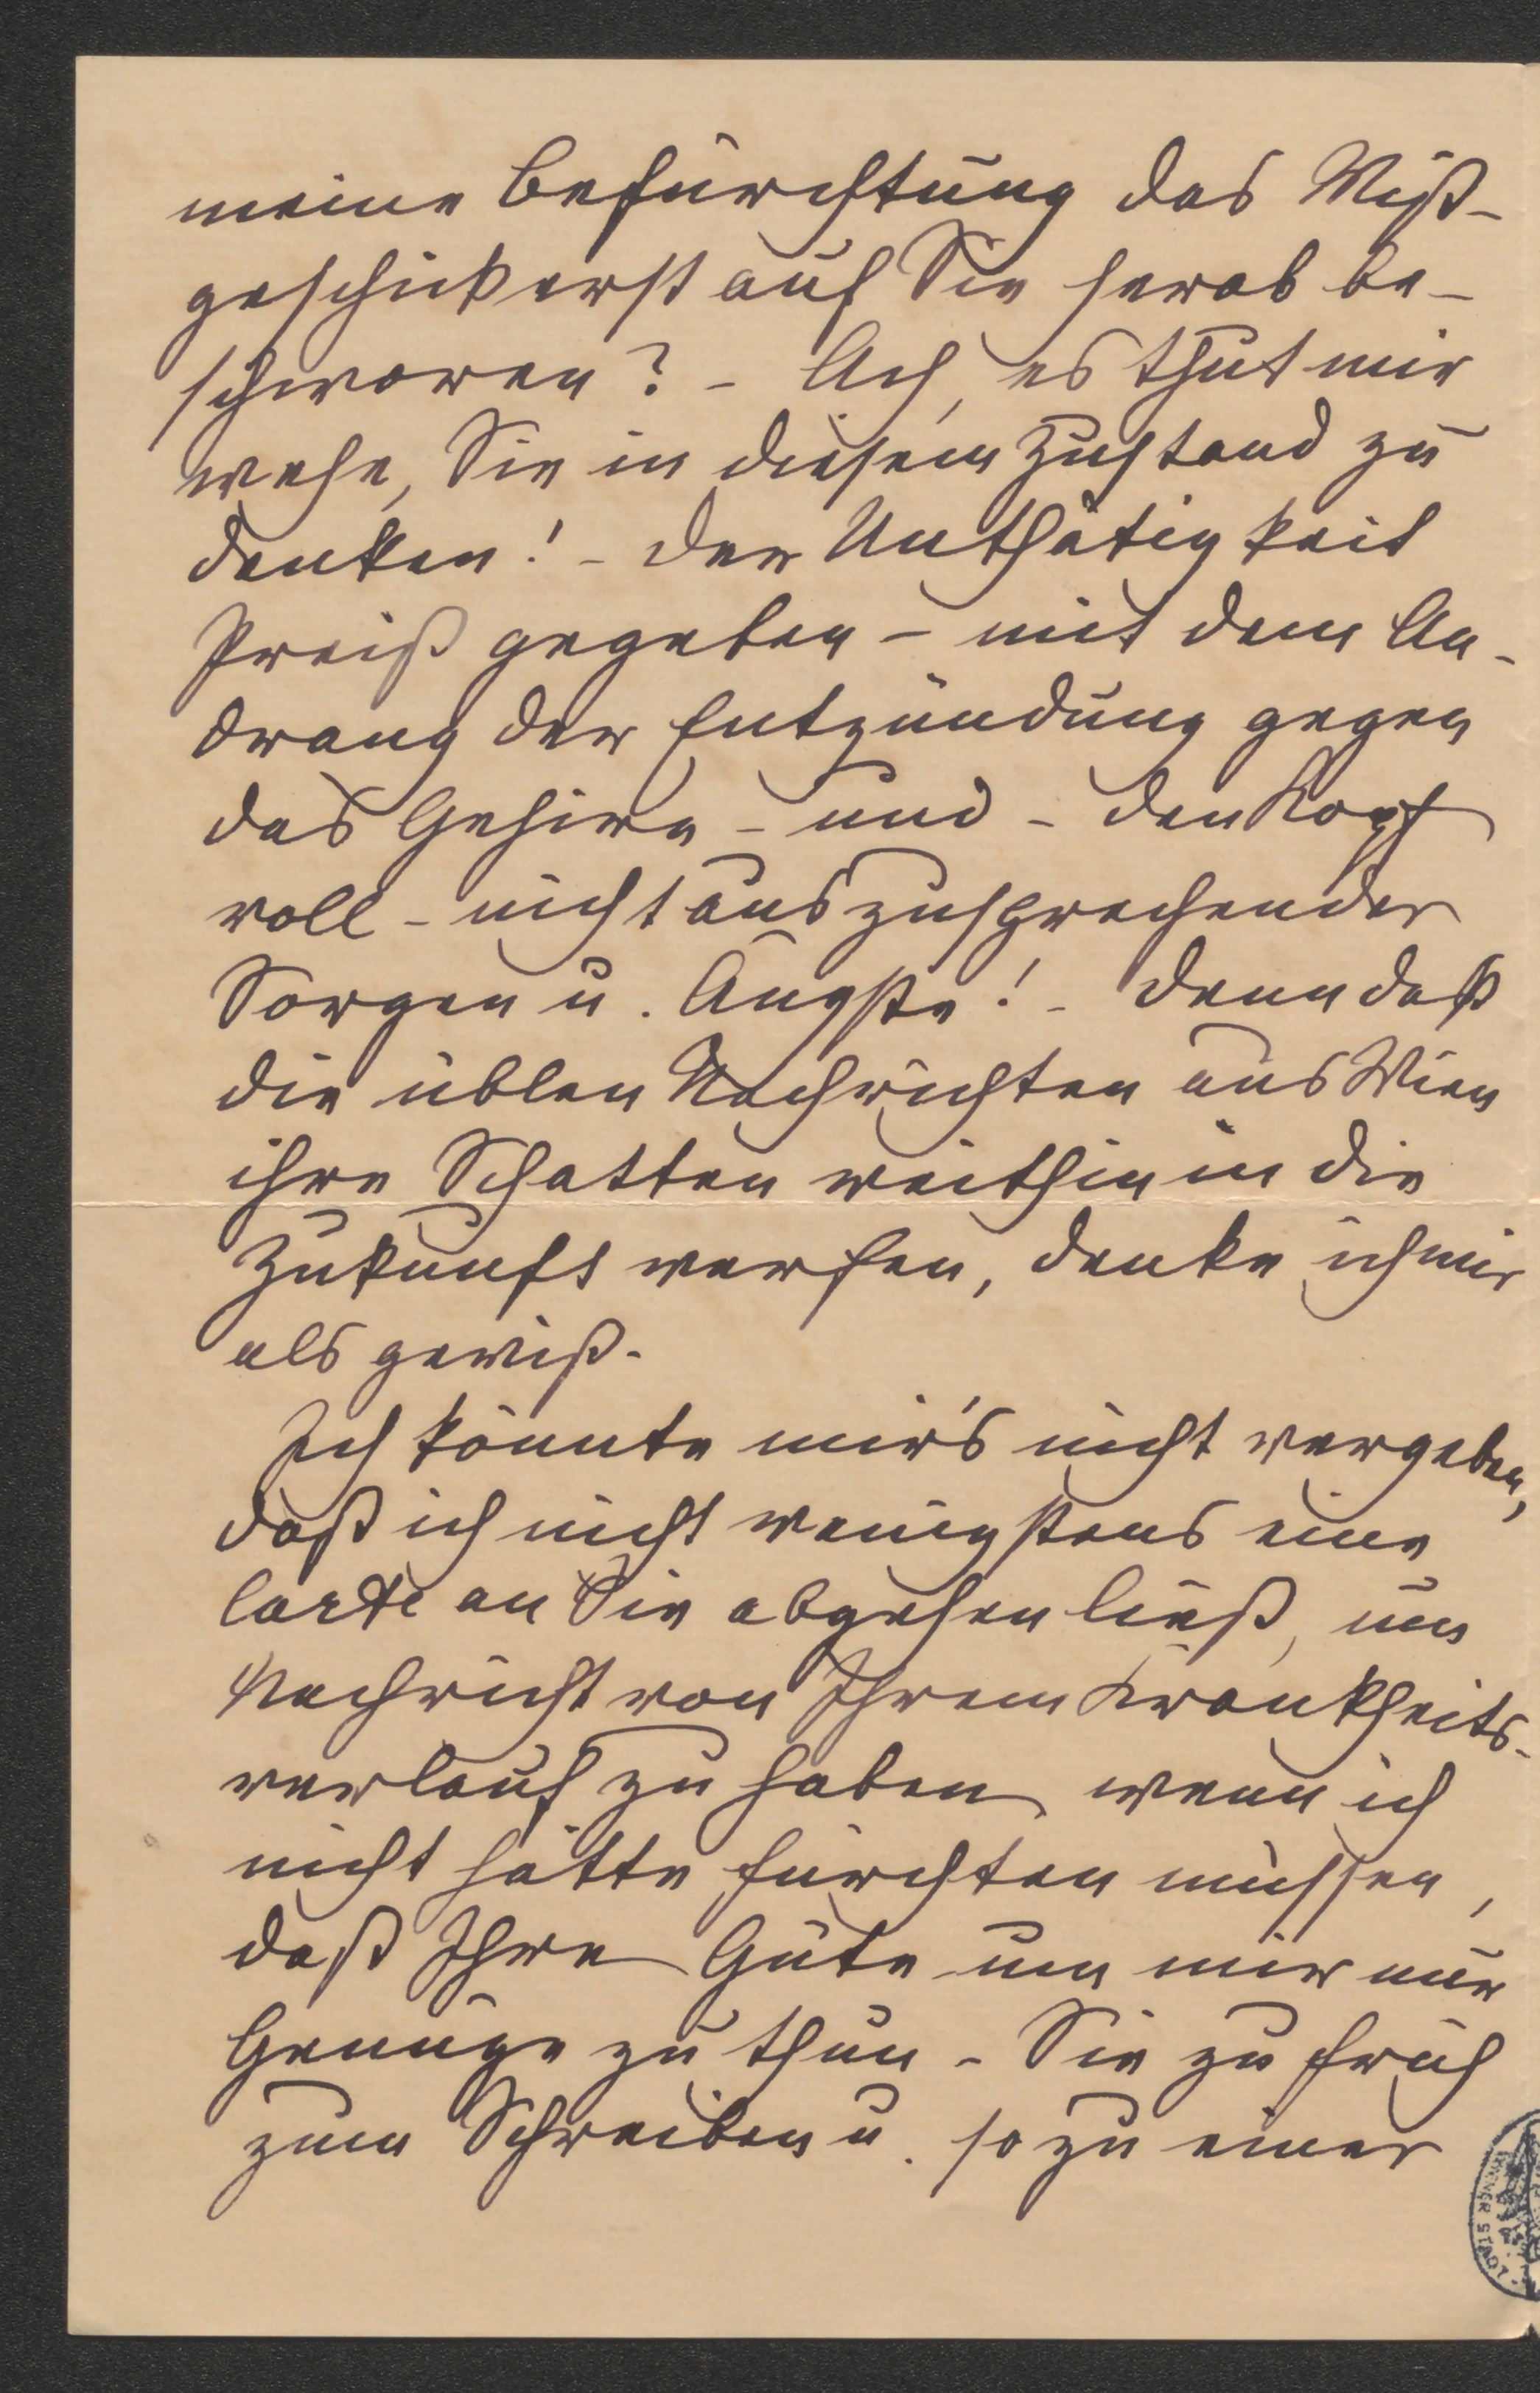 meine Befürchtung das Miß-
geschick erst auf Sie herab be-
schworen? - Ach, es thut mir
wehe, Sie in diesem Zustand zu
denken! - Der Unthätigkeit
Preiß gegeben - mit dem An-
drang der Entzündung gegen
das Gehirn - und - den Kopf
voll - nicht auszusprechender
Sorgen u. Ängste! - Denn daß
die üblen Nachrichten aus Wien
ihre Schatten weithin in die
Zukunft werfen, denke ich mir
als gewiß.
Ich könnte mir's nicht vergeben,
daß ich nicht wenigstens eine
Carte an Sie abgehen ließ, um
Nachricht von Ihrem Krankheits-
verlauf zu haben, wenn ich
nicht hätte fürchten müssen,
daß Ihre Güte um mir nur
Genüge zu thun - Sie zu früh
zum Schreiben u. so zu einer
WIENER STADT-